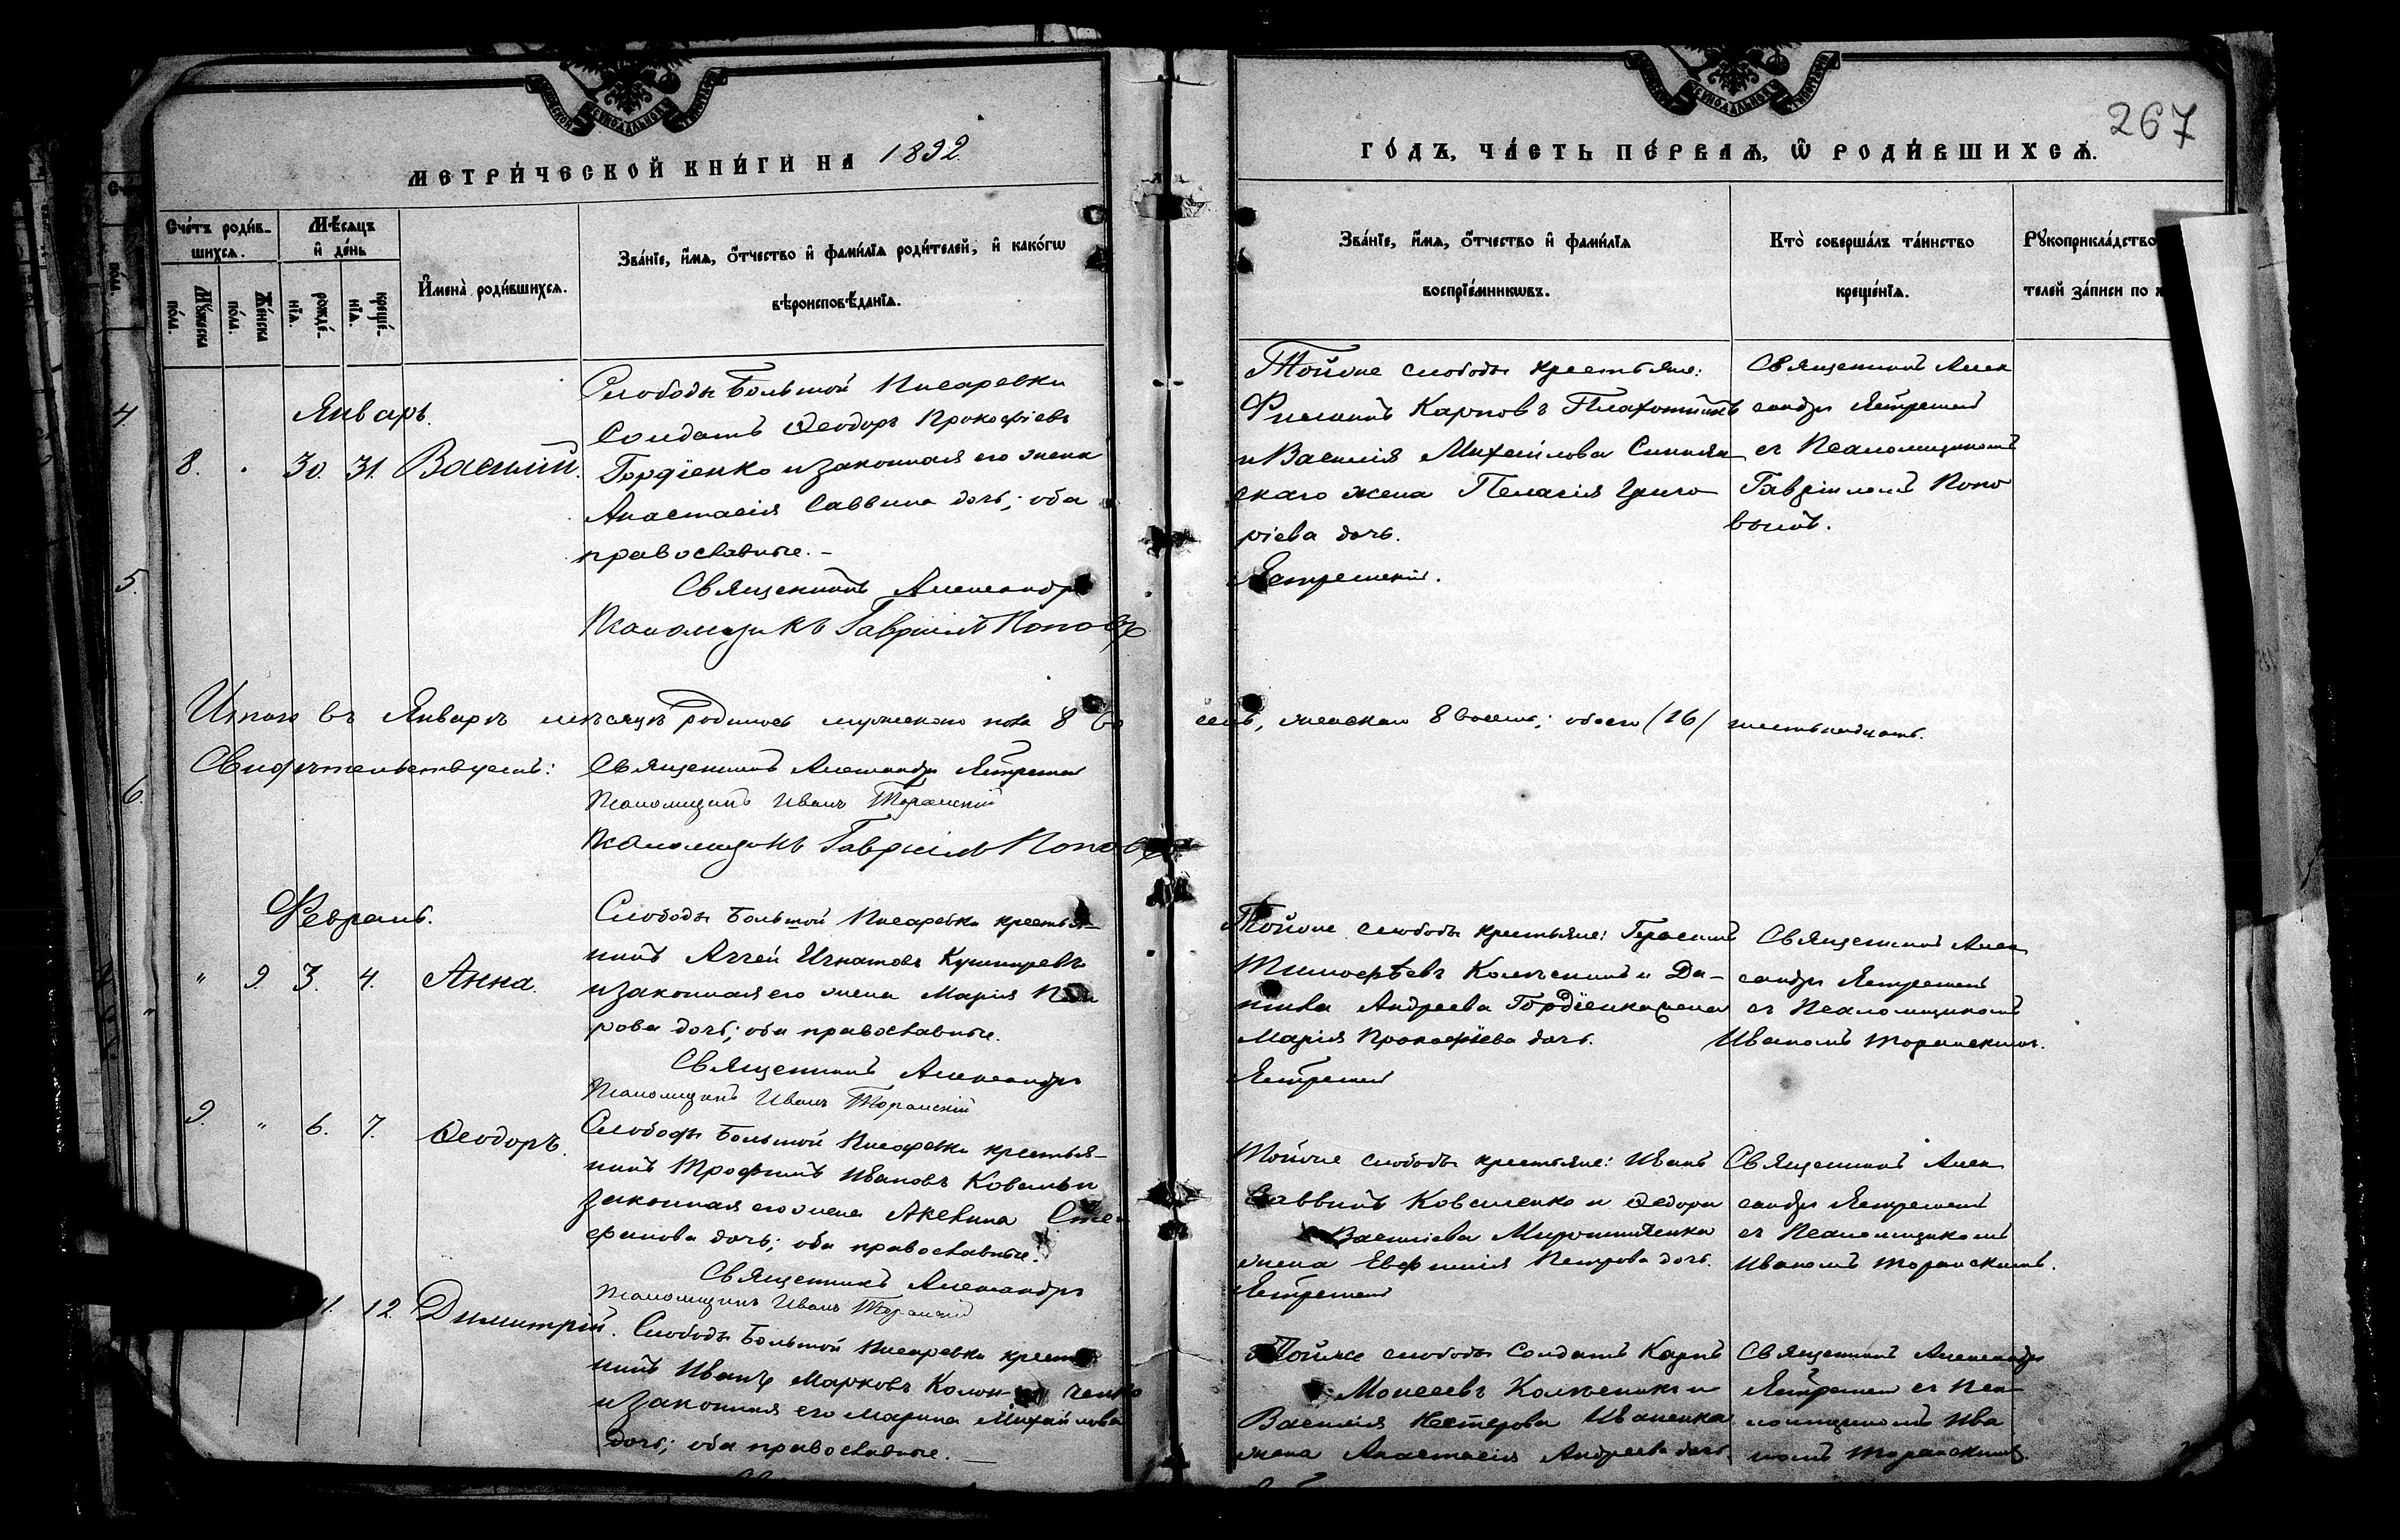 267
МЕТРИ́ЧЕСКОЙ КНИ́ГИ НА 1892.
ГО́ДЪ, ЧА́СТЬ ПЕ́РВАѦ, Ѡ҆ РОДИ́ВШИХСѦ.
Сче́тъ роди́в-
шихсѧ.
Мѣ́сѧцъ
и҆ де́нь
Мꙋ́жеска
по́ла.
Же́нска
по́ла.
рожде́-
нїѧ.
креще́-
нїѧ.
И҆мена̀ роди́вшихсѧ.
Зва́нїе, и҆́мѧ, ѻ҆́тчество и҆ фами́лїѧ роди́телей, и҆ како́гѡ
вѣроисповѣ́данїѧ.
Зва́нїе, и҆́мѧ, ѻ҆́тчество и҆ фами́лїѧ
воспрїе́мникѡвъ.
Кто̀ соверша́лъ та́инство
креще́нїѧ.
Рꙋкоприкла́дство
телей за́писи по
Январь.
8. . 30. 31. Василій.
Слободы Большой Писаревки
Солдатъ Ѳеодоръ Прокофіевъ
Гордіенко и законная его жена
Анастасія Саввина дочь; оба
православные. -
Священникъ Александръ
Псаломщикъ Гавріилъ Поповъ
Тойже слободы крестьяне:
Филиппъ Карповъ
и Василія Михайлова
скаго жена Пелагія Григо
ріева дочь.
Ястремскій.
Священникъ Алек
сандръ Ястремскій
съ Псаломщикомъ
Гавріиломъ Попо
вымъ.
Итого въ Январѣ мѣсяцѣ родилось мужескаго пола 8 во
семь, женскаго 8 восемь; обоего (16) шестьнадцать.
Свидѣтельствуемъ:
Священникъ Александръ Ястремскій
Псаломщикъ Иванъ Торанскій
Псаломщикъ Гавріилъ Поповъ
Февраль.
" 9. 3. 4. Анна.
Слободы Большой Писаревки крестья-
нинъ Аггей Игнатовъ Кушнаревъ
и законная его жена Марія
рова дочь; оба православные.
Священникъ Александръ
Псаломщикъ Иванъ Торанскій
Тойже слободы крестьяне: Герасимъ
Тимофѣевъ Колѣсникъ и Да-
нила Андреева Гордіенка жена
Марія Прокофіева дочь.
Ястремскій
Священникъ Алек
сандръ Ястремскій
съ Псаломщикомъ
Иваномъ Торанскимъ.
9. " 6. 7. Ѳеодоръ.
Слободы Большой Писаревки крестья-
нинъ Трофимъ Ивановъ Коваль и
законная его жена Акелина Сте-
фанова дочь; оба православные.
Священникъ Александръ
Псаломщикъ Иванъ Торанскій
Тойже слободы крестьяне: Иванъ
Саввинъ Коваленко и Ѳедора
Василіева Мирошниченка
жена Евфимія Петрова дочь.
Ястремскій
Священникъ Алек
сандръ Ястремскій
съ Псаломщикомъ
Иваномъ Торанскимъ.
11. 12. Димитрій.
Слободы Большой Писаревки крестья
нинъ Иванъ Марковъ
и законная его Марина Михайлова
дочь; оба православные. -
Тойже слободы Солдатъ Карпъ
Моисеевъ Колѣсникъ и
Василія Нестерова Иваненка
жена Анастасія Андреева дочь.
Священникъ Александръ
Ястремскій съ Пса-
ломщикомъ Ива
номъ Торанскимъ.
4.
5.
6.